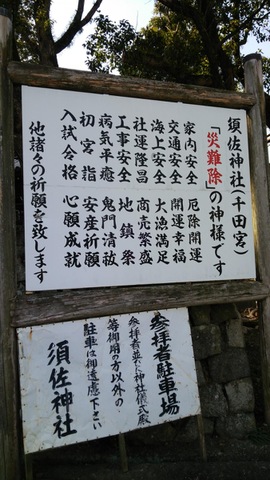 須佐神社(千田宮)
「災難除」の神様です
家内安全 厄除開運
交通安全 開運幸福
海上安全 大漁満足
社運隆昌 商売繁盛
工事安全 地鎮祭
病気平癒 鬼門清祓
初宮指 安産祈願
入試合格 心願成就
他諸々の祈願を致します
参拝者駐車場
参拝者並びに神社儀式殿
等御用の方以外の
駐車は御遠慮下さい
須佐神社